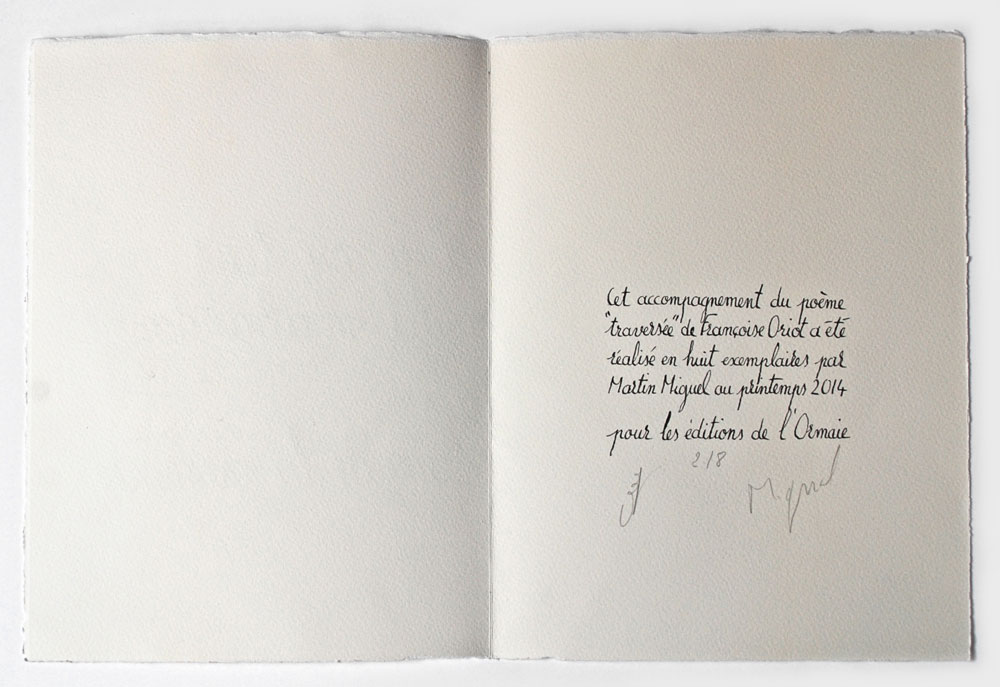 Cet accompagnement du poème
"traversée" de Françoise Oriot a été
réalisé en huit exemplaires par
Martin Miguel au printemps 2014
pour les éditions de l'Ormaie
2/8
Miguel